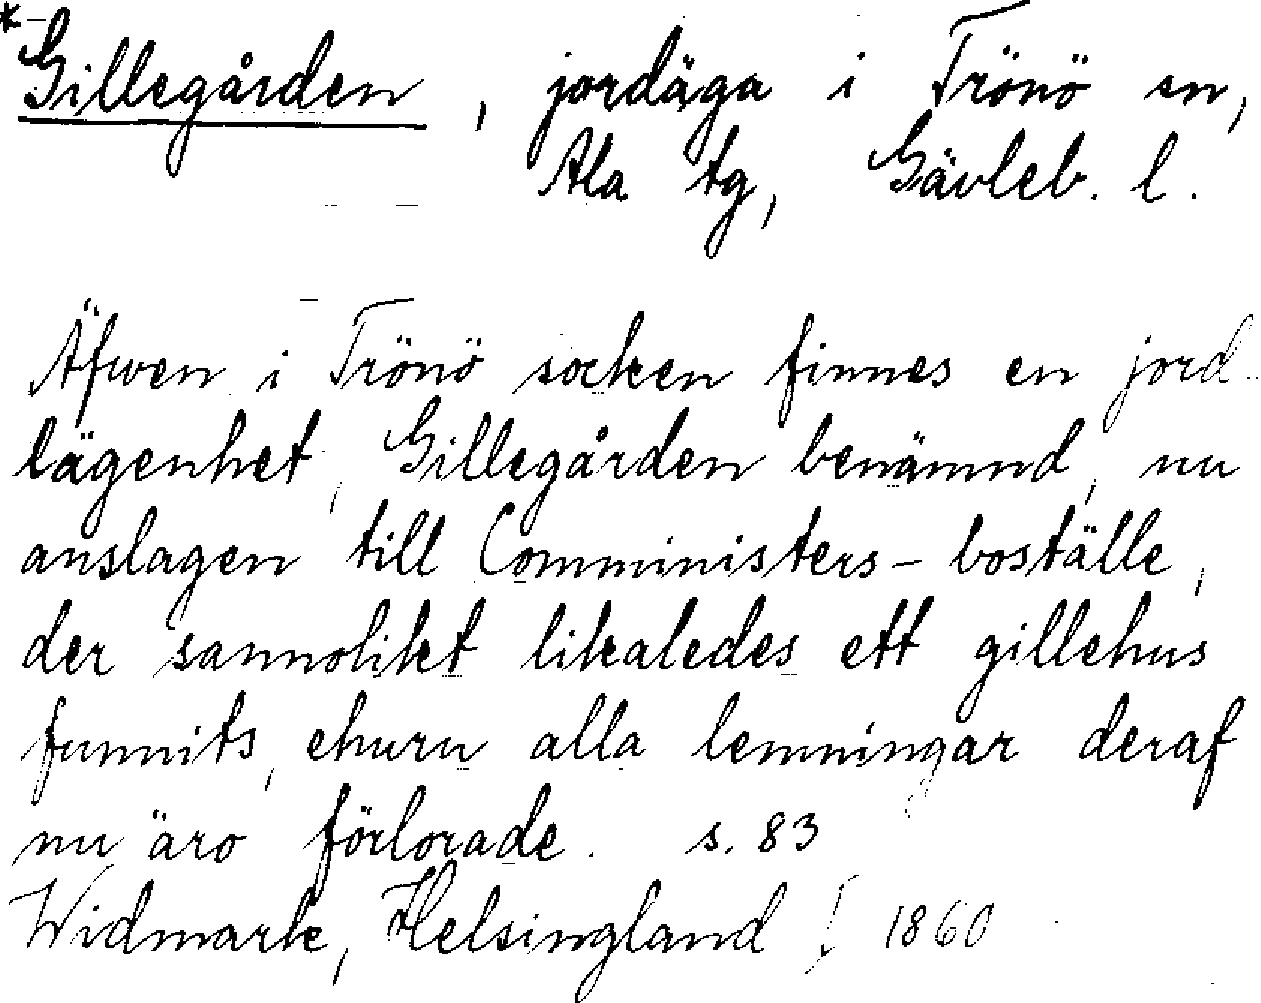 *Gillegården, jordäga i Trönö sn,
Ala tg, Gävleb. l.
Äfwen i Trönö socken finnes en jord-
lägenhet, Gillegården benämnd, nu
anslagen till Comministers-boställe,
der sannolikt likaledes ett gillehus
funnits, ehuru alla lemningar deraf
nu äro förlorade. s. 83
Widmark, Helsingland I 1860